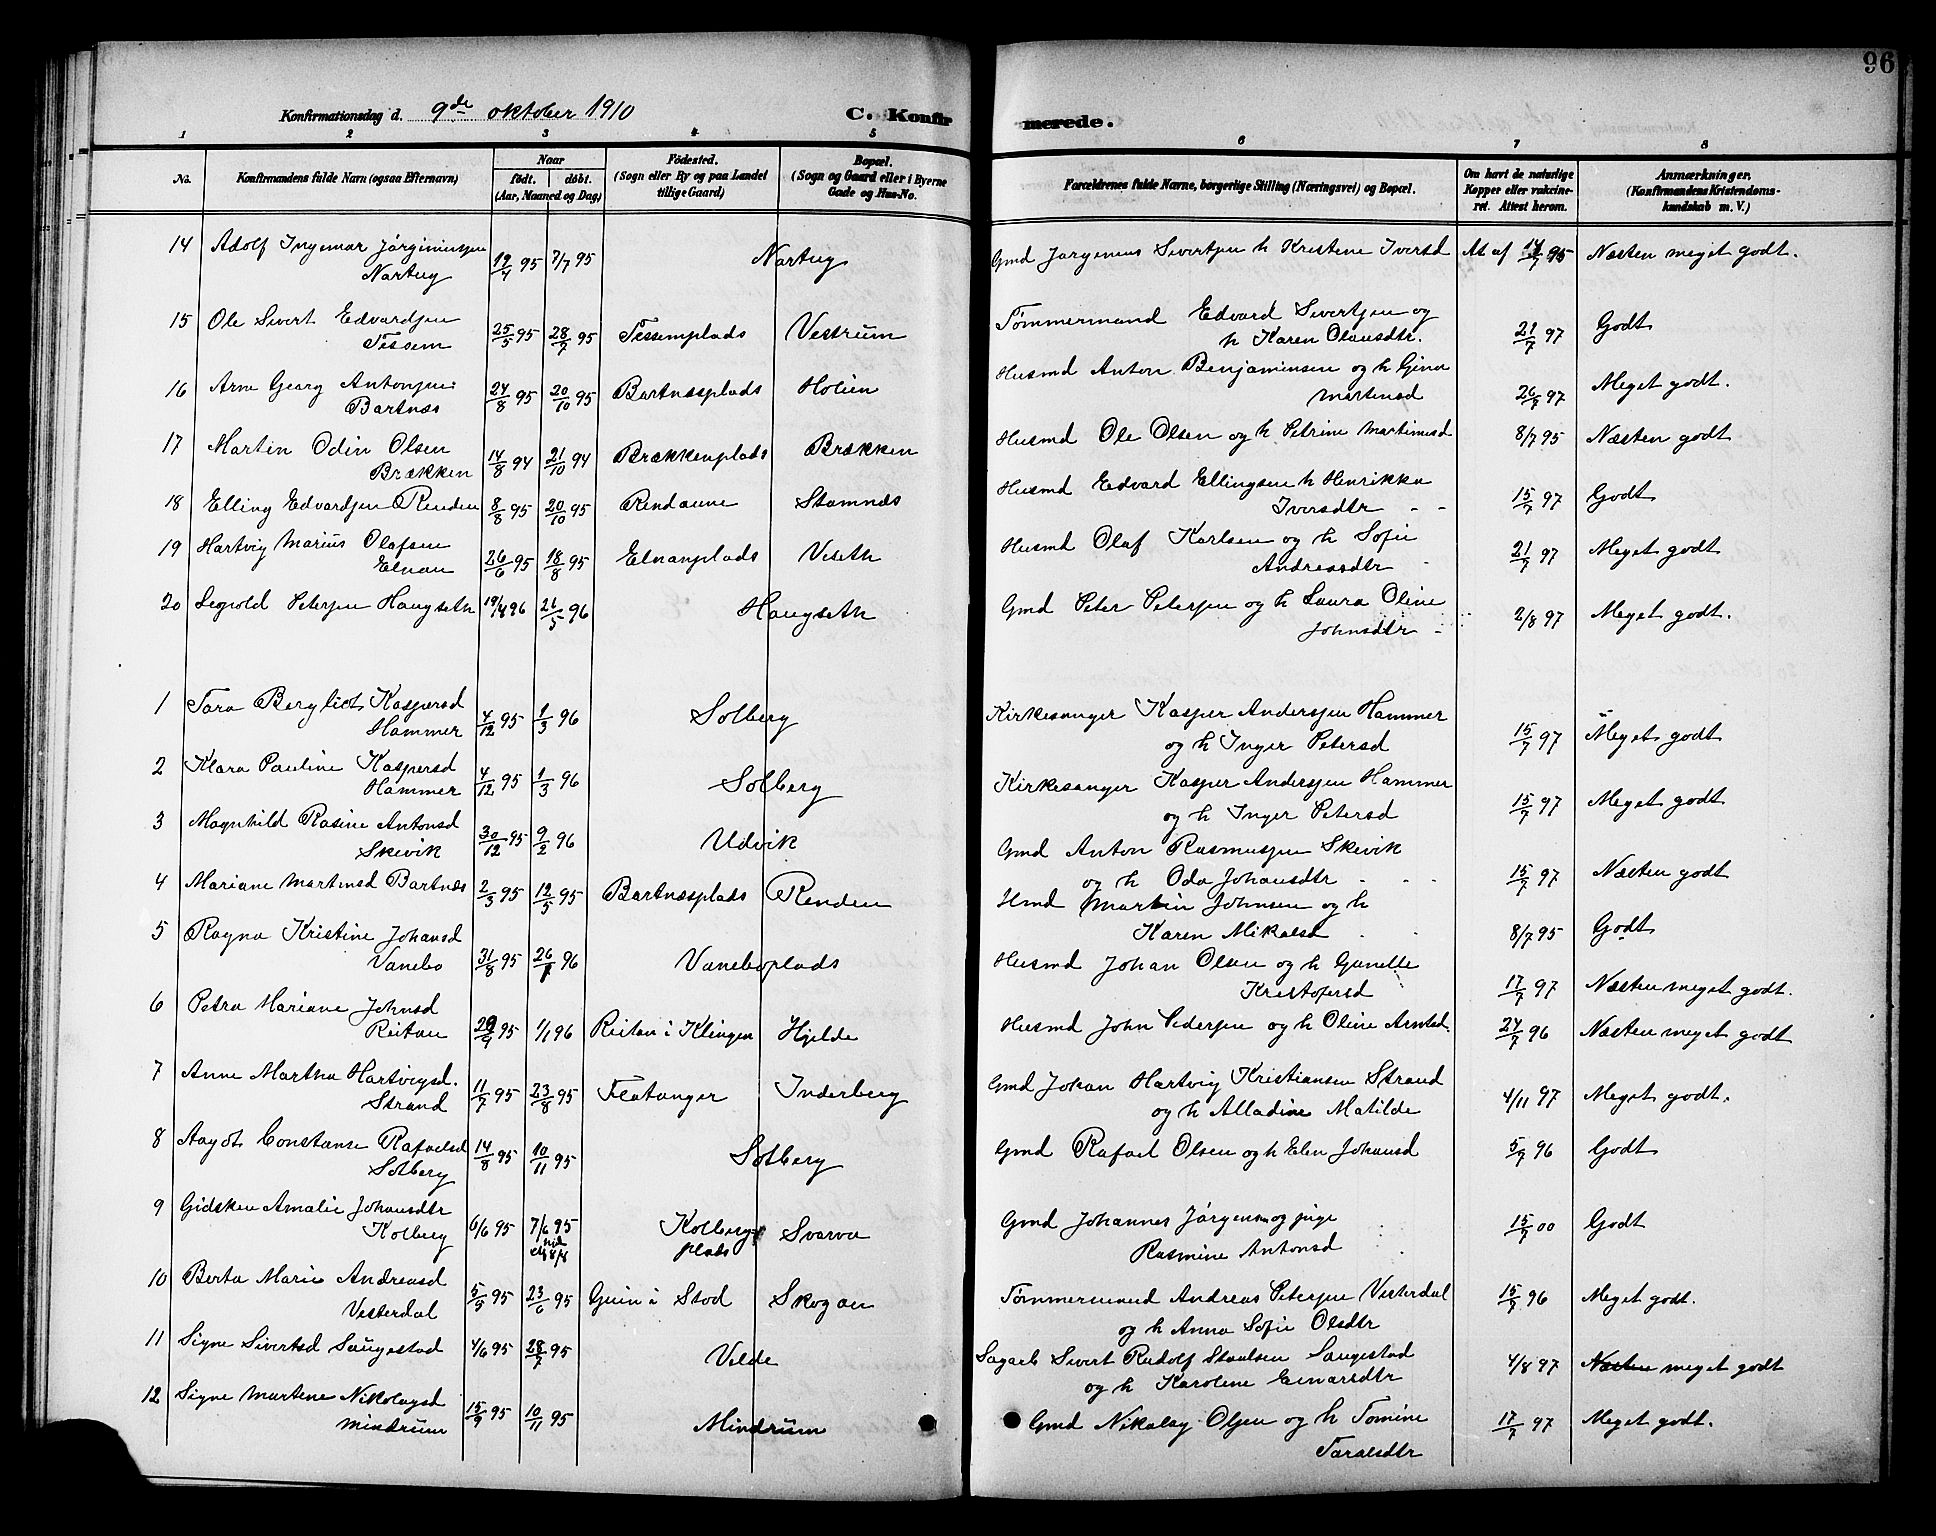 96
Konfirmationsdag d. 9de oktober 1910 C. Konfirmerede.
1 2 3 4 5 6 7 8
No. Konfirmandens fulde Navn (ogsaa Efternavn)
Naar født. døbt. (Aar, Maaned og Dag)
Födested. (Sogn eller By og paa Landet tillige Gaard)
Bopæl. (Sogn og Gaard eller i Byerne Gade og Hus-No.
Forældrenes fulde Navne, borgerlige Stilling (Næringsvei) og Bopæl.
Om havt de naturlige Kopper eller vakcineret. Attest herom.
Anmærkninger. (Konfirmandens Kristendomskundskab m. V.)
14 Adolf Ingemar Jørginiussen 19/4 95 7/7 95 Nartug Gmd Jørgenus Sivertsen h Kristene Iversd At af 14/7 95 Næsten meget godt.
Nartug
15 Ole Sivert Edvardsen 25/5 95 28/7 95 Tessemplads Vestrum Tømmermand Edvard Sivertsen og 21/7 97 Godt
Tessem h Karen Olausdtr.
16 Arne Georg Antonsen 24/8 95 20/10 95 Bartnæsplads Holien Husmd Anton Benjaminsen og h Gina 26/7 97 Meget godt.
Bartnæs Martinsd
17 Martin Odin Olsen 14/8 94 21/10 94 Brækkenplads Brækken Husmd Ole Olsen og h Petrine Martinusd 8/7 95 Næsten godt
Brækken
18 Elling Edvardsen Renden 8/8 95 20/10 95 Rendaune Stamnæs Husmd Edvard Ellingsen h Henrikka 15/7 97 Godt
Iversdtr
19 Hartvig Marius Olafsen 26/6 95 18/8 95 Elnanplads Veseth Husmd Olaf Karlsen og h Sofie 21/7 97 Meget godt
Elnan Andreasdtr
20 Leopold Petersen Haugseth 19/4 96 26/5 96 Haugseth Gmd Peter Petersen og h Laura Oline 2/8 97 Meget godt.
Johnsdtr
1 Tora Bergliot Kaspersd 4/12 95 1/3 96 Solberg Kirkesanger Kasper Andersen Hammer 15/7 97 Meget godt
Hammer og h Inger Petersd
2 Klara Pauline Kaspersd 4/12 95 1/3 96 Solberg Kirkesanger Kasper Andersen Hammer 15/7 97 Meget godt
Hammer og h Inger Petersd
3 Magnhild Rasine Antonsd 30/12 95 9/2 96 Udvik Gmd Anton Rasmussen Skevik 15/7 97 Næsten godt
Skevik og h Oda Johansdtr
4 Mariane Martinsd Bartnæs 2/3 95 12/5 95 Bartnæsplads Renden Hmd Martin Johnsen og h 8/7 95 Godt
Karen Mikalsd
5 Ragna Kristine Johansd 31/8 95 26/1 96 Vaneboplads Husmd Johan Olsen og h Gunelle 17/7 97 Næsten meget godt.
Vanebo Kristofersd
6 Petra Mariane Johnsd 29/9 95 1/1 96 Reitan i Klingen Hjelde Husmd John Pedersen og h Oline Arntsd. 24/7 96 Næsten meget godt
Reitan
7 Anne Martha Hartvigsd. 11/7 95 23/8 95 Flatanger Inderberg Gmd Johan Hartvig Kristiansen Strand 4/11 97 Meget godt.
Strand og h Alladine Matilde
8 Aagot Constanse Rafaelsd 14/8 95 10/11 95 Solberg Gmd Rafael Olsen og h Elen Johansd 5/7 96 Godt
Solberg
9 Gidsken Amalie Johansdtr 6/6 95 7/6 95 Kolbergs Svarva Gmd Johannes Jørgensen og pige 15/7 00 Godt
Kolberg plads Rasmine Antonsd
10 Berta Marie Andreasd 5/5 95 23/6 95 Guin i Stod Skogan Tømmermand Andreas Petersen Vesterdal 15/7 96 Meget godt.
Vesterdal og h Anna Sofie Olsdtr
11 Signe Sivertsd Saugestad 4/6 95 28/7 95 Velde Sagarb Sivert Rudolf Staalsen Saugestad 4/8 97 Næsten meget godt
og h Karoline Einarsdtr
12 Signe Martene Nikolaysd 15/9 95 10/11 95 Mindrum Gmd Nikolay Olsen og h Tomine 17/7 97 Meget godt.
Mindrum Taraldsdtr